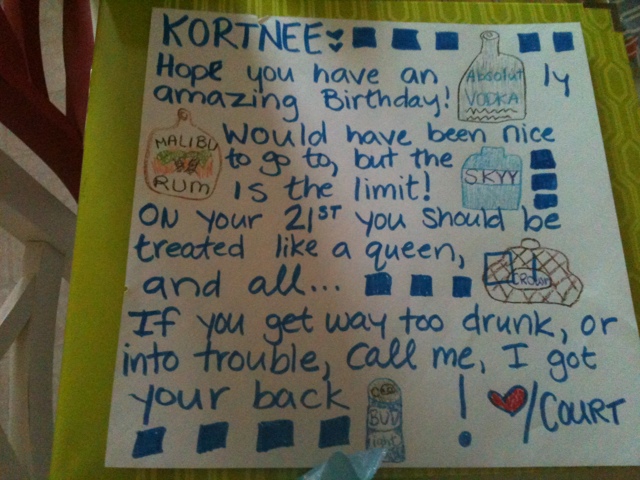 KORTNEE
Hope you have an Absolut VODKA ly
amazing Birthday!
MALIBU RUM Would have been nice
to go to, but the SKYY
is the limit!
ON your 21ST you should be
treated like a queen,
and all... CROWN
If you get way too drunk, or
into trouble, call me, I got
your back BUD light ! /COURT